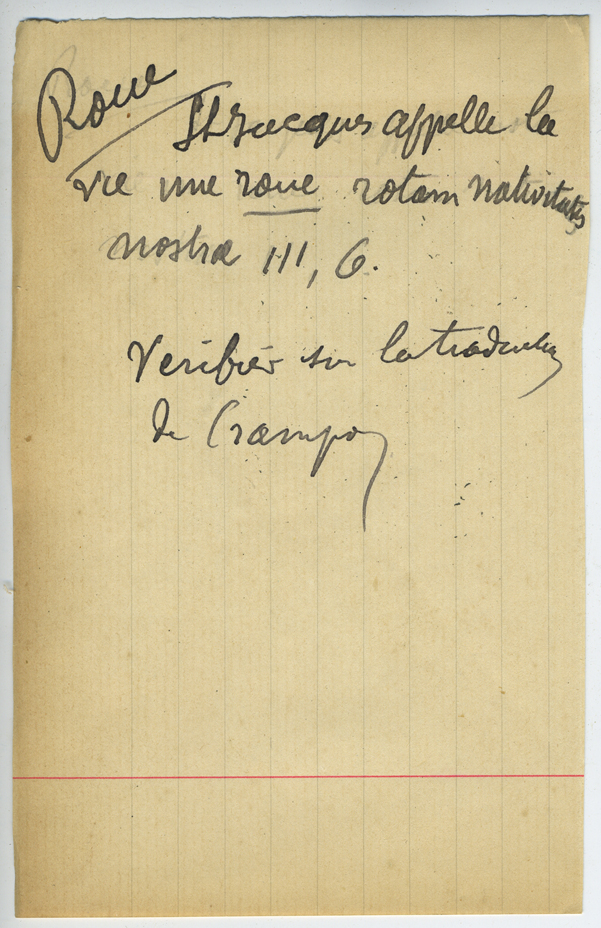 Roue
St Jacques appelle la
vie une roue rotam nativitatis
nostræ III, 6.
Vérifier sur la traduction
de Crampon